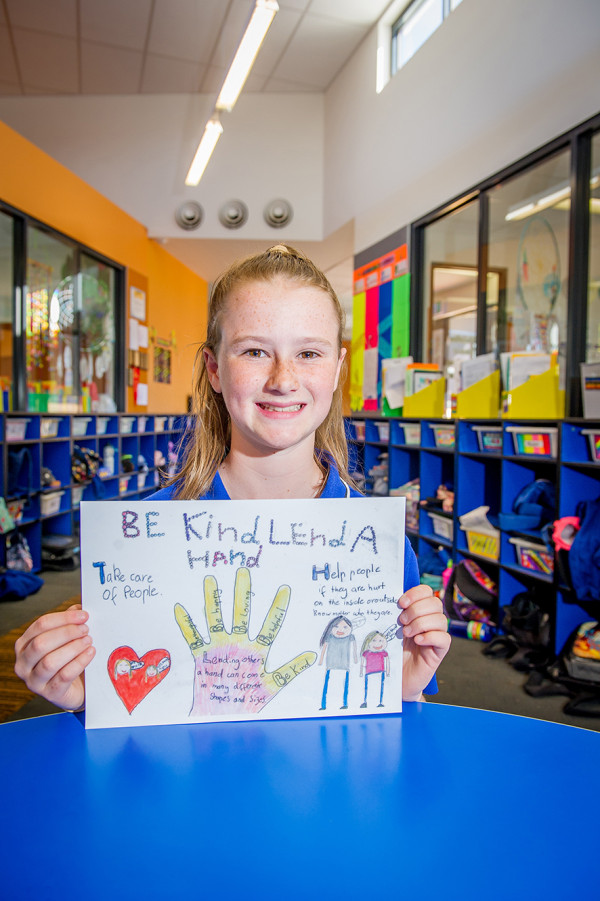 BE Kind LEnd A
HAND
Take care
of People.
Help people
if they are hurt
on the inside or outside
Know mater who they are.
Be happy
Be caring
Be helpful
Be Kind
others
a hand can come
in many different
Shapes and Sizes